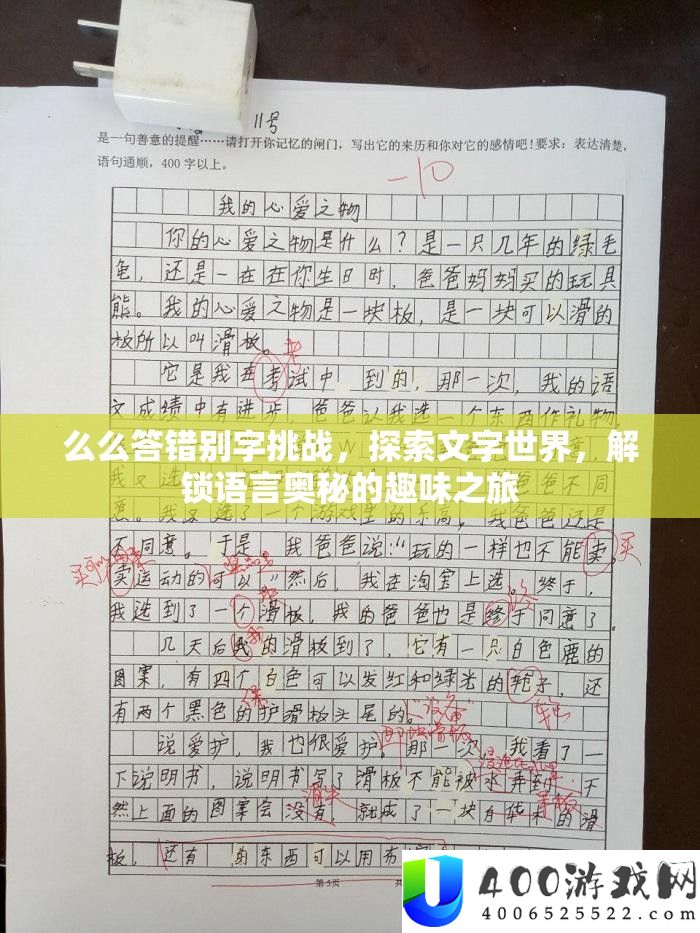 11号
是一句善意的提醒……请打开你记忆的闸门，写出它的来历和你对它的感情吧！要求：表达清楚，
语句通顺，400字以上。
-10
我的心爱之物
你的心爱之物是什么？是一只几年的绿毛
龟，还是一在在你生日时，爸爸妈妈买的玩具
熊。我的心爱之物是一块板，是一块可以滑的
板所以叫滑板。
它是我再考试中，到的，那一次，我的语
文成绩中有进步，爸爸认我选一个东西作礼物，
么么答错别字挑战，探索文字世界，解
锁语言奥秘的趣味之旅
爸爸不同
意。我又选了一个游戏里的乐高，我爸爸还是
不同意。于是，我爸爸说：玩的一样也不能卖，买
卖运动的可以”然后，我在淘宝上选。终于，
我选到了一个滑板，我的爸爸也是终于同意了。
几天后我的滑板到了，它有一只白色鹿的
图案，有四个白色可以发红和绿光的轮子，还
有两个黑色的护滑板头尾的。“设备”
说爱护，我也很爱护。那一次，我看了一
下说明书，说明书写了滑板不能被水弄到，不
然上面的图案会没有，就成了一块的滑
板，还有的东西可以用布
第5页
400游戏网
4006525522.com